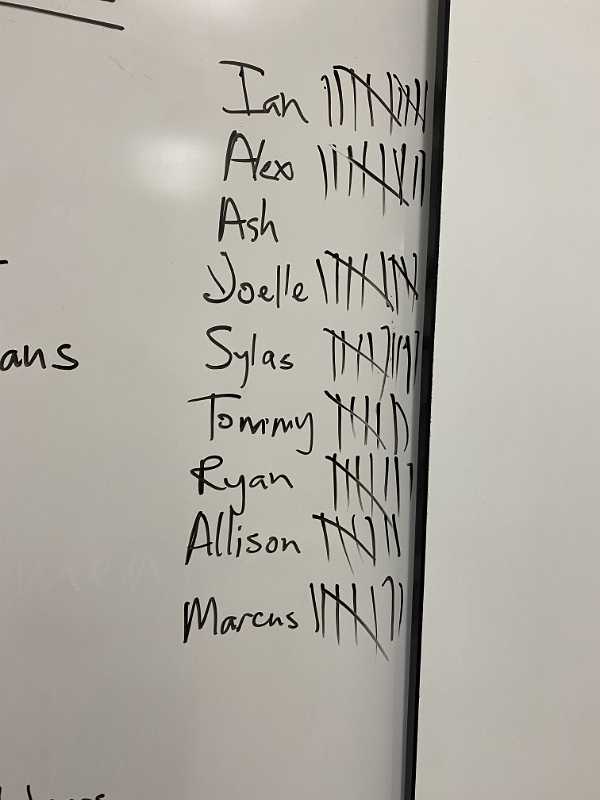 Ian
Alex
Ash
Joelle
ans
Sylas
Tommy
Ryan
Allison
Marcus